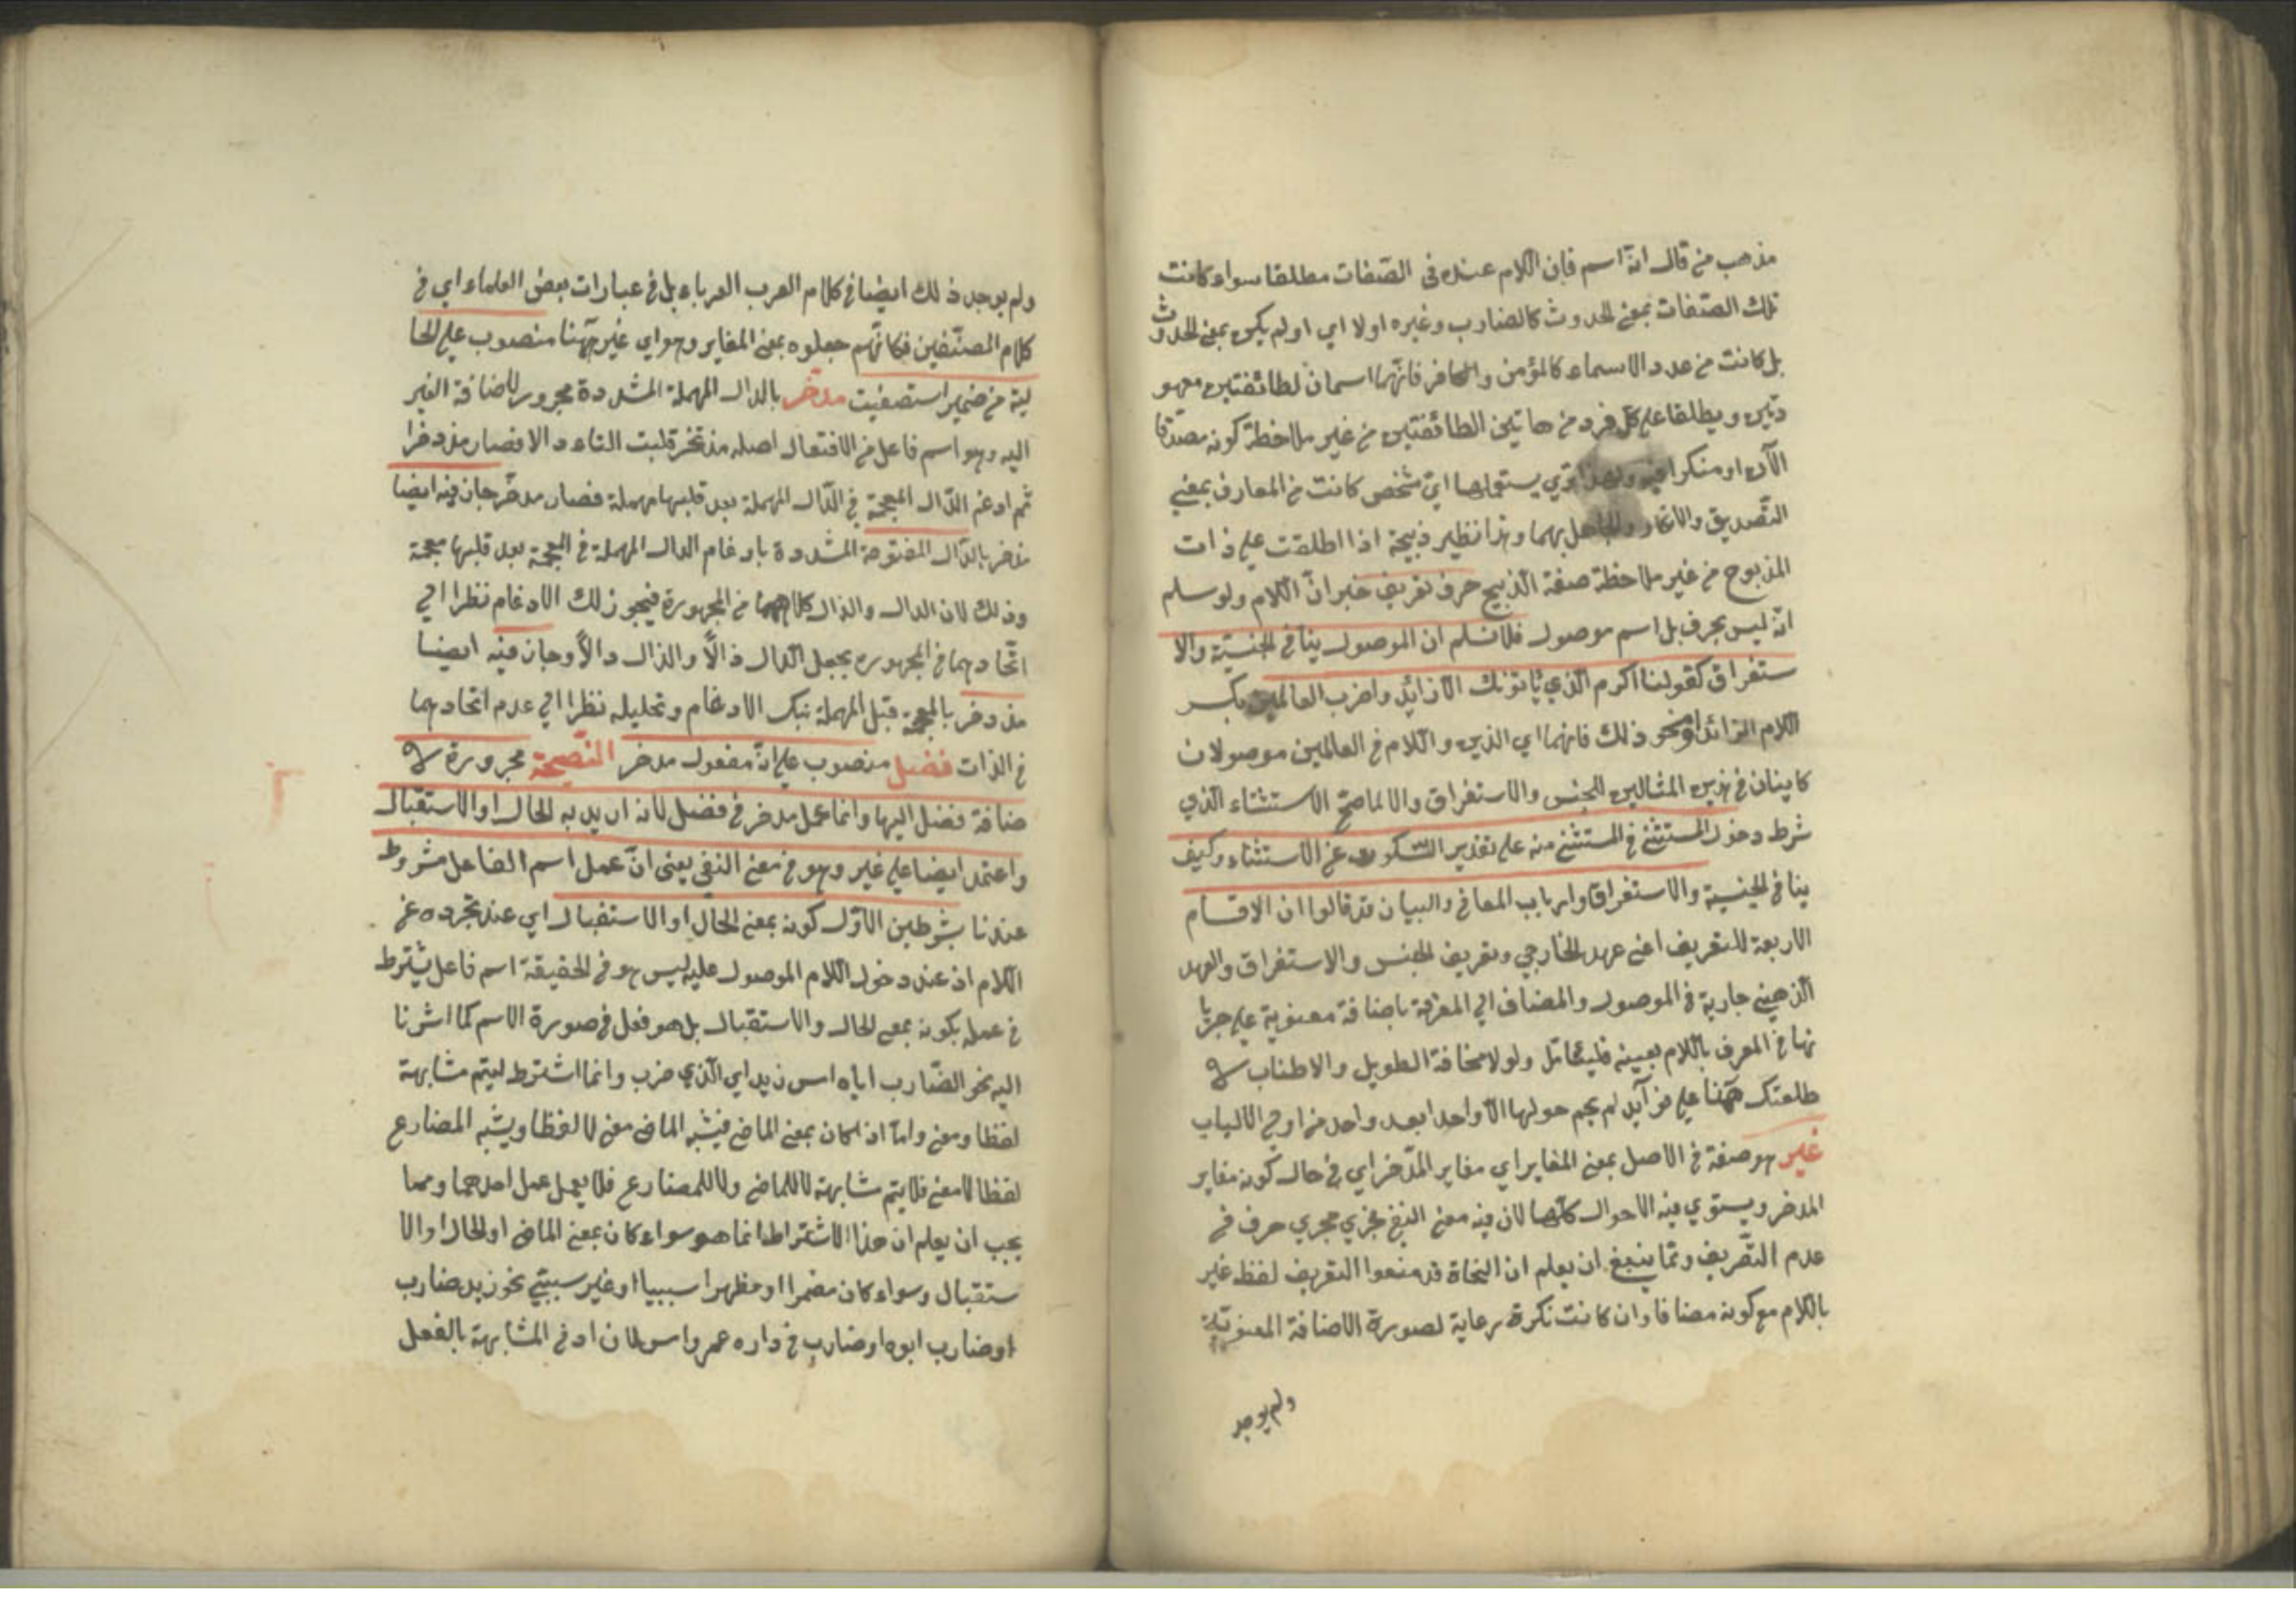 مذهب من قال انه اسم فان اللام عنده فى الصفات مطلقا سواء كانت
تلك الصفات بمعنى الحدوث كالضارب وغيره اولا اي او لم يكن بمعنى الحدوث
بل كانت من عدد الاسماء كالمؤمن والكافر فانهما اسمان لطائفتين معهو
دتين ويطلقا على كل فرد من هاتين الطائفتين من غير ملاحظة كونه مصدقا
الآن او منكرا فيه يستعملها اي شخص كانت من المعارف بمعنى
التصديق والانكار والجاهل بهما وهذا نظير ذبيحة اذا اطلقت على ذات
المذبوح من غير ملاحظة صفة الذبيح حرف تعريف خبر ان اللام ولو سلم
انه ليس بحرف بل اسم موصول فلا نسلم ان الموصول ينافى الجنسية والا
ستغراق كقولنا اكرم الذي يأتونك الا زائد واضرب العالمين بكسر
اللام الزائد او نحو ذلك فانهما اي الذين واللام في العالمين موصولان
كاينان في هذين المثالين للجنس والاستغراق والا لما صح الاستثناء الذي
شرط دخول المستثنى في المستثنى منه على تقدير السكوت عن الاستثناء وكيف
ينافى الجنسية والاستغراق وارباب المعاني والبيان قد قالوا ان الاقسام
الاربعة للتعريف اعنى عهد الخارجي وتعريف الجنس والاستغراق والعهد
الذهني جارية في الموصول والمضاف الى المعرفة باضافة معنوية على جريا
نها في المعرف باللام بعينه فليتامل ولولا مخافة الطويل والاطناب لا
طلعتك ههنا على فوآيد لم يحم حولها الا واحدا بعد واحد من اولى الالباب
غير هو صفة في الاصل بمعنى المغاير اي مغاير المدخر اي في حال كونه مغاير
المدخر ويستوي فيه الاحوال كلها لان فيه معنى النفى فجري مجري حرف في
عدم التصريف ومما ينبغي ان يعلم ان النحاة قد منعوا التعريف لفظ غير
باللام مع كونه مضافا وان كانت نكرة رعاية لصورة الاضافة المعنوية
ولم يوجد
ولم يوجد ذلك ايضا في كلام العرب العرباء بل في عبارات بعض العلماء اي في
كلام المصنفين فكانهم جعلوه بمعنى المغاير وهو اي غير ههنا منصوب على الحا
لية من ضمير استصفيت مدخر بالدال المهملة المشددة مجرور لاضافة الغير
اليه وهو اسم فاعل من الافتعال اصله مذتخر قلبت التاء دالا فصار مذدخرا
ثم ادغم الذال المعجمة في الدال المهملة بعد قلبها مهملة فصار مدخر جاز فيه ايضا
مذخر بالذال المفتوحة المشددة بادغام الدال المهملة في المعجمة بعد قلبها معجمة
وذلك لان الدال والذال كلاهما من المجهورة فيجوز ذلك الادغام نظرا الى
اتحادهما في المجهورة بجعل الدال ذالا والذال دالا وجاز فيه ايضا
مذدخر بالمعجمة قبل المهملة بفك الادغام وتحليله نظرا الى عدم اتحادهما
في الذات فضل منصوب على انه مفعول مدخر النصيحة مجرورة لا
ضافة فضل اليها وانما عمل مدخر في فضل لانه اريد به الحال او الاستقبال
واعتمد ايضا على غير وهو في معنى النفي يعنى ان عمل اسم الفاعل مشروط
عندنا بشرطين الاول كونه بمعنى الحال او الاستقبال اي عند تجرده عن
اللام اذ عند دخول اللام الموصول عليه ليس هو في الحقيقة اسم فاعل يشترط
في عمله بكونه بمعنى الحال والاستقبال بل هو فعل في صورة الاسم كما اشرنا
اليه نحو الضارب اياه امس زيد اي الذي ضرب وانما اشترط ليتم مشابهة
لفظا ومعنى واما اذا كان بمعنى الماضي فيشبه الماضي معنى لا لفظا ويشبه المضارع
لفظا لا معنى فلا يتم مشابهة لا للماضي ولا للمضارع فلا يعمل عمل احدهما ومما
يجب ان يعلم ان هذا الاشتراط انما هو سواء كان بمعنى الماضي او الحال او الا
ستقبال وسواء كان مضمرا او مظهرا سببيا او غير سببي نحو زيد ضارب
او ضارب ابوه او ضارب في داره عمرو امس لان ادنى المشابهة بالفعل